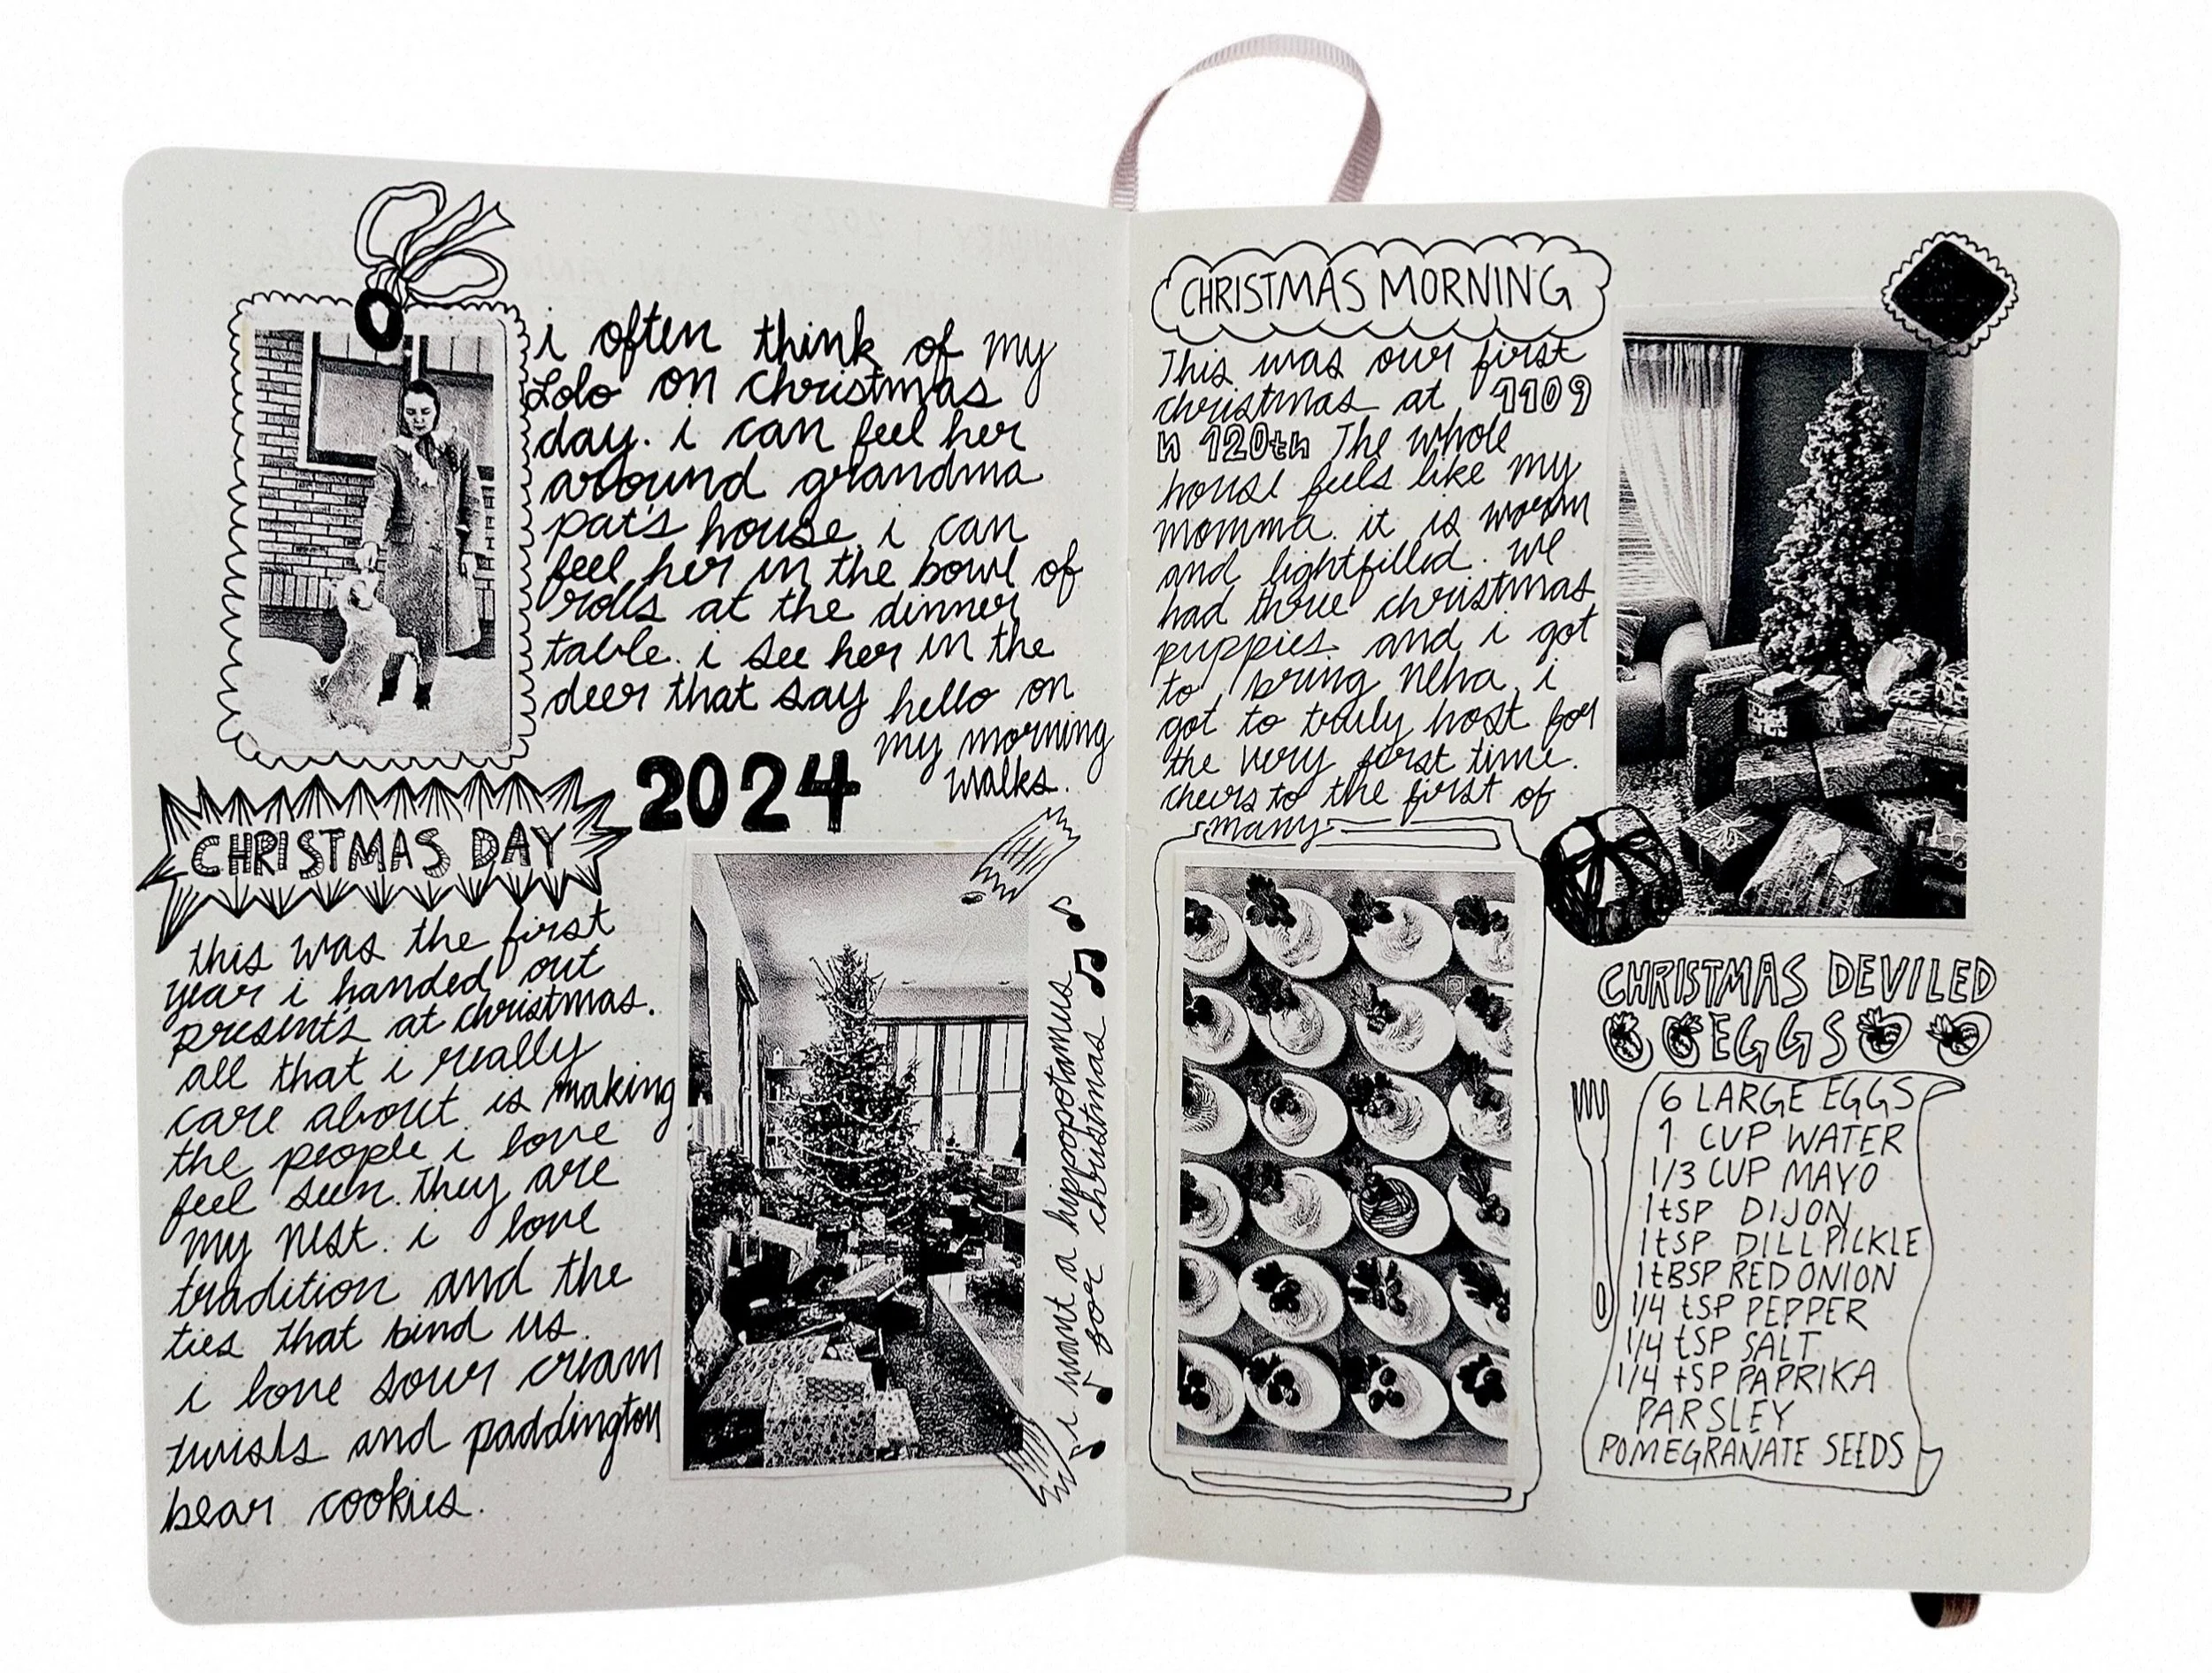 i often think of my
Lolo on christmas
day. i can feel her
around grandma
pat's house. i can
feel her in the bowl of
rolls at the dinner
table. i see her in the
deer that say hello on
my morning
walks.
2024
CHRISTMAS DAY
this was the first
year i handed out
presents at christmas.
all that i really
care about is making
the people i love
feel seen. they are
my nest. i love
tradition and the
ties that bind us.
i love sour cream
twists and paddington
bear cookies.
i want a hippopotamus
for christmas
CHRISTMAS MORNING
This was our first
christmas at 1109
n 120th The whole
house feels like my
momma. it is warm
and lightfilled. we
had three christmas
puppies and i got
to bring Neha, i
got to truly host for
the very first time.
cheers to the first of
many
CHRISTMAS DEVILED
EGGS
6 LARGE EGGS
1 CUP WATER
1/3 CUP MAYO
1tSP DIJON
1tSP DILL PICKLE
1tBSP RED ONION
1/4 tSP PEPPER
1/4 tSP SALT
1/4 tSP PAPRIKA
PARSLEY
POMEGRANATE SEEDS